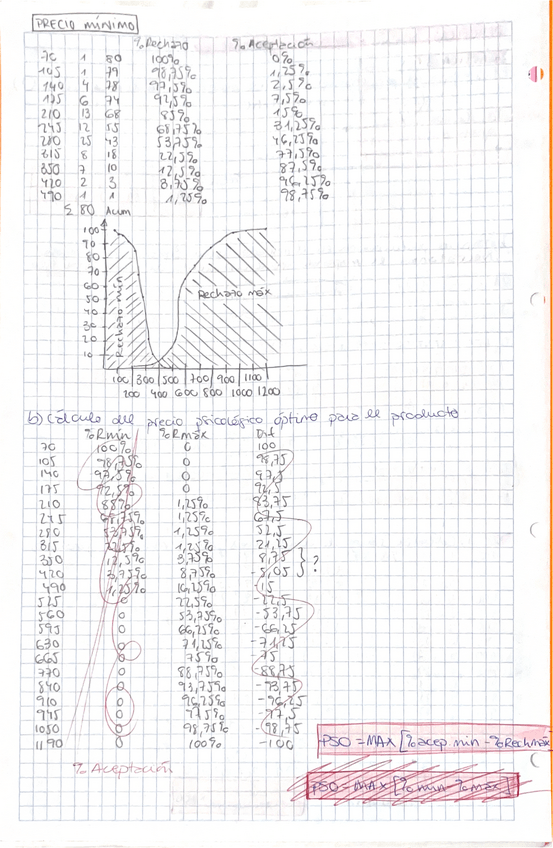 PRECIO MÍNIMO
% Rechazo % Aceptación
70 1 80 100% 0%
105 1 79 98,75% 1,25%
140 4 78 97,5% 2,5%
175 6 74 92,5% 7,5%
210 13 68 85% 15%
245 12 55 68,75% 31,25%
280 25 43 53,75% 46,25%
315 8 18 22,5% 77,5%
350 7 10 12,5% 87,5%
420 2 3 3,75% 96,25%
490 1 1 1,25% 98,75%
Σ 80 Acum
100
90
80
70
60
50
40
30
20
10
Rechazo mín
Rechazo máx
100 300 500 700 900 1100
200 400 600 800 1000 1200
b) Cálculo del precio psicológico óptimo para el producto
% Rmín % Rmáx Dif
70 100% 0 100
105 98,75% 0 98,75
140 97,5% 0 97,5
175 92,5% 0 92,5
210 85% 1,25% 83,75
245 68,75% 1,25% 67,5
280 53,75% 1,25% 52,5
315 22,5% 1,25% 21,25
350 12,5% 3,75% 8,75
420 3,75% 8,75% -5,05 } ?
490 1,25% 16,25% -15
525 0 22,5% -22,5
560 0 53,75% -53,75
595 0 66,25% -66,25
630 0 71,25% -71,25
665 0 75% -75
770 0 88,75% -88,75
840 0 93,75% -93,75
910 0 96,25% -96,25
945 0 97,5% -97,5
1050 0 98,75% -98,75
1190 0 100% -100
PSO = MAX [% acep. min - % Rech max
% Aceptación
PSO = MAX [% min - % max]